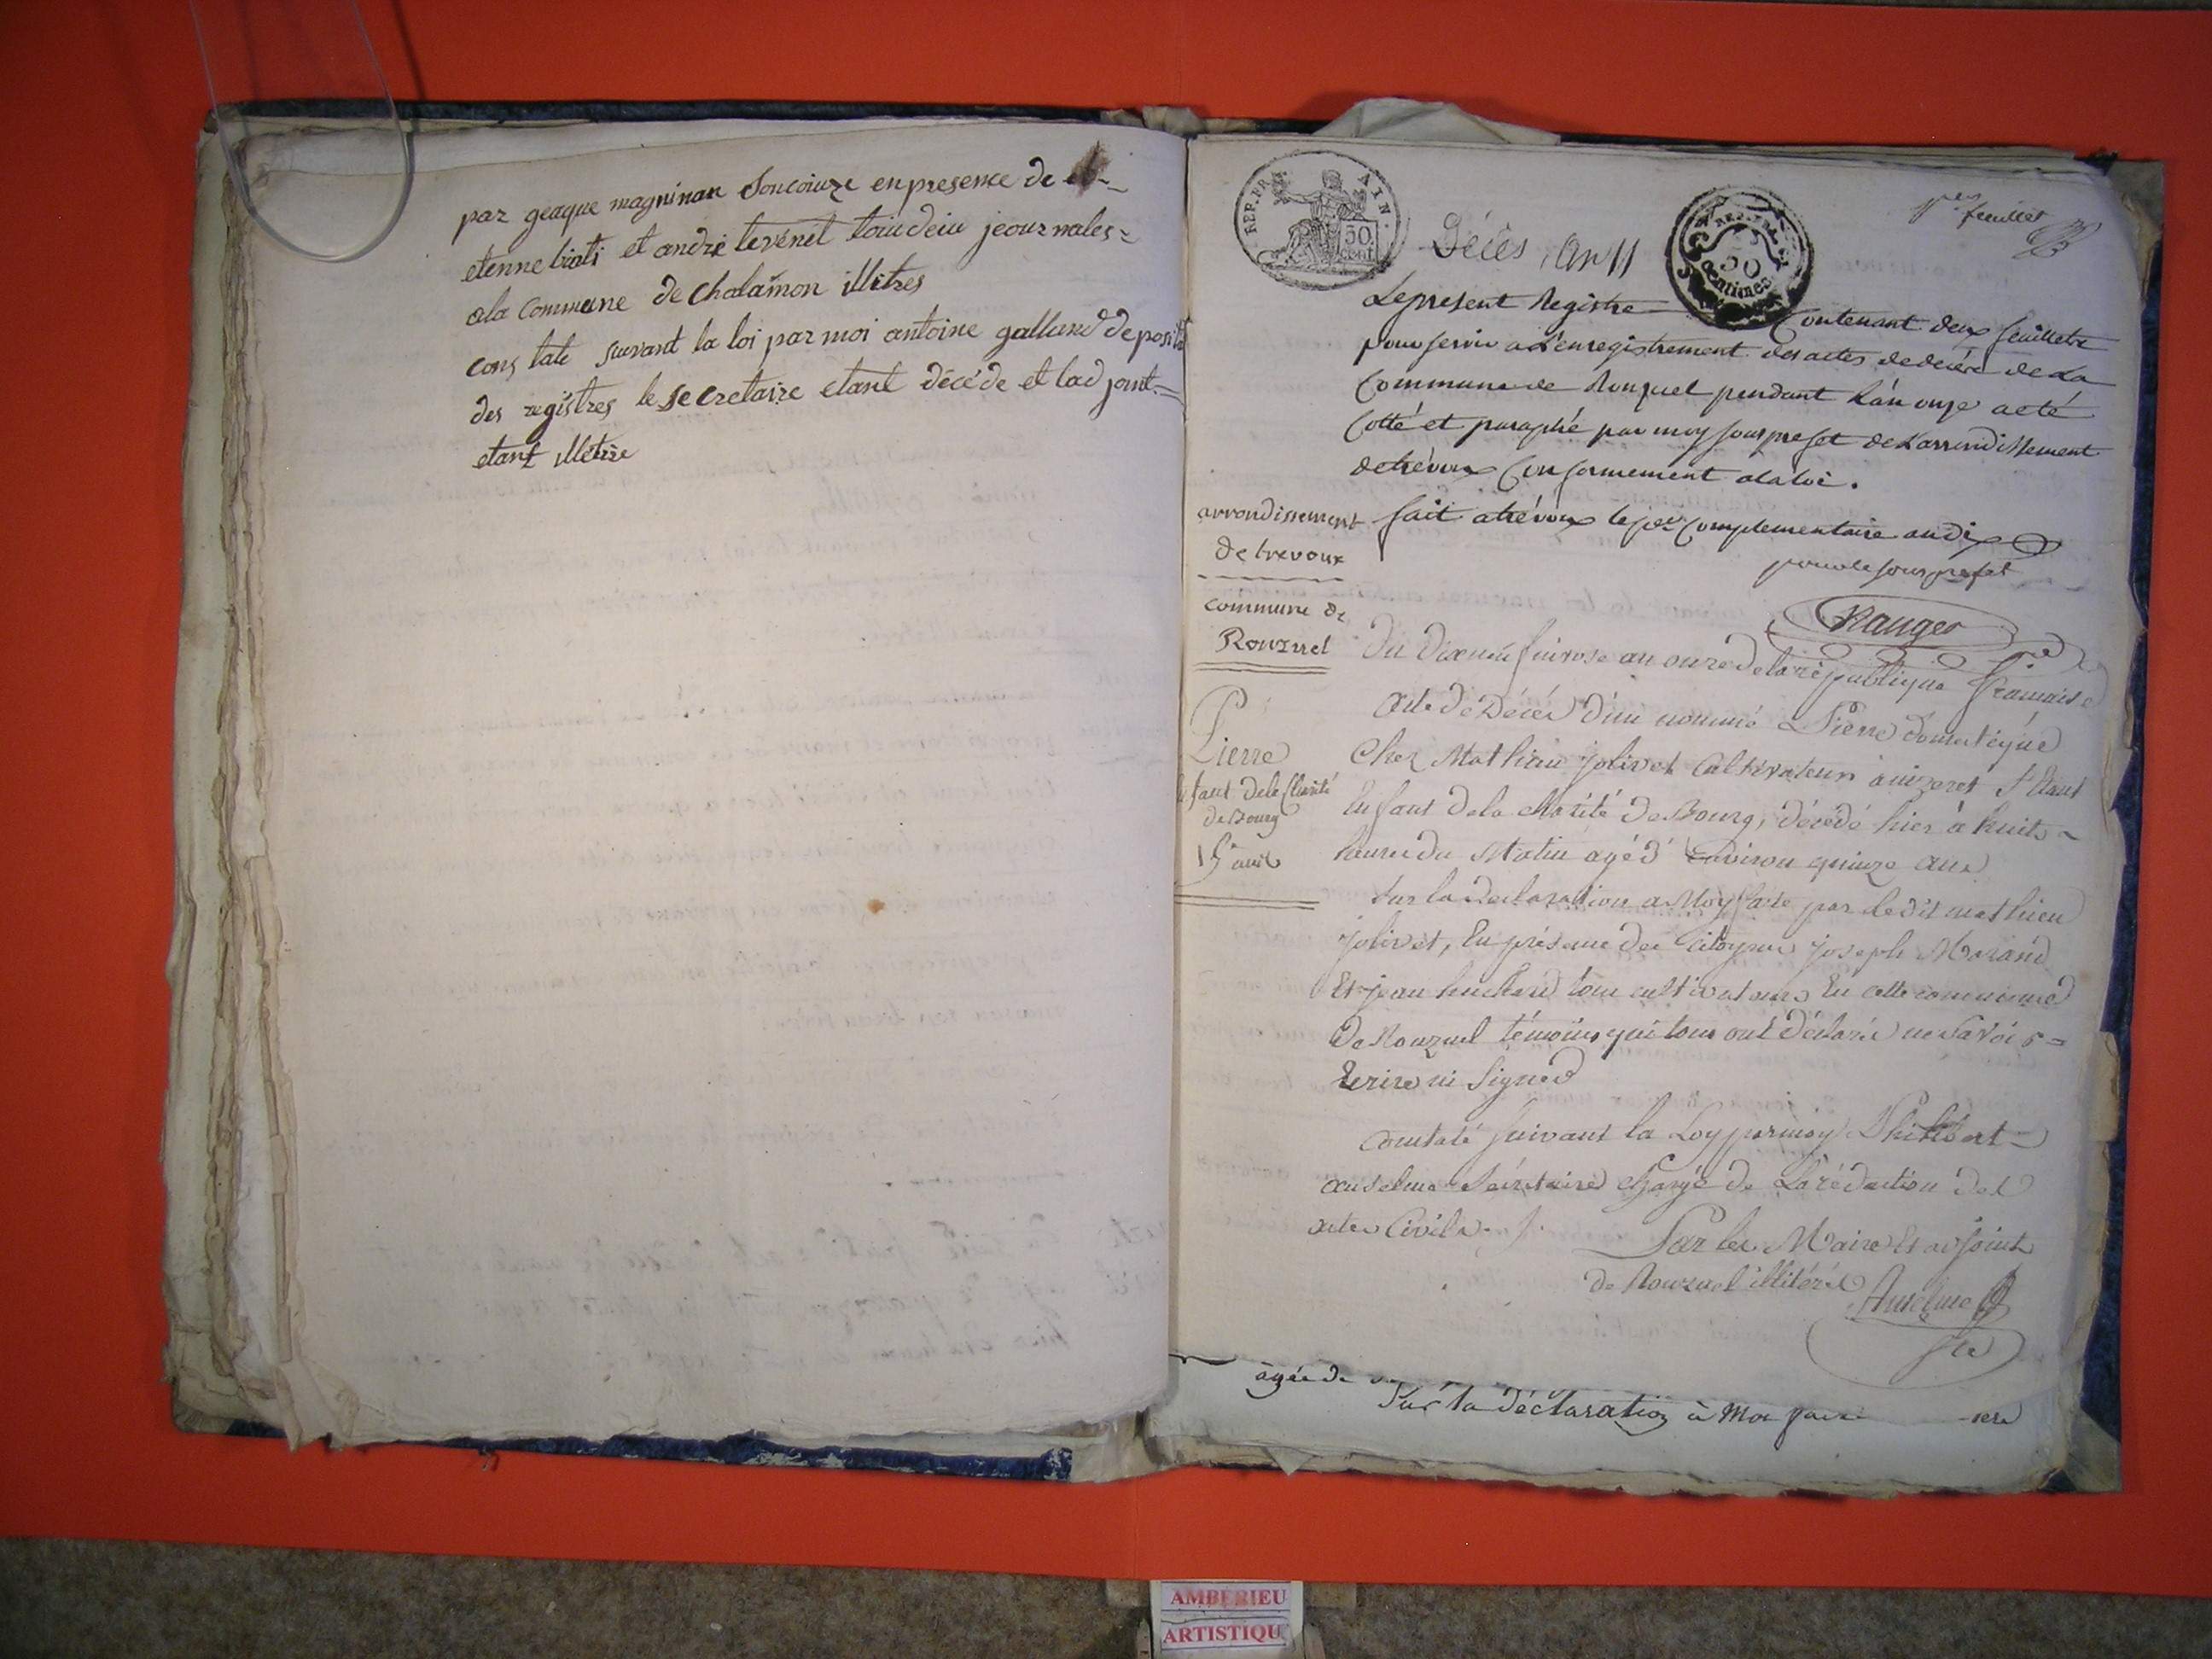 par geaque magninan Soncoiuze en presence de
etienne biati et andré tevenet tou deiu jeournales=
a la Commune de Chalamon illitres
cons tate suivant la loi par moi antoine galland deposit
des registres le secretaire etant décéde et lad joint=
etant illétre
REP. FRA. AIN
50 cent.
REP. FRA.
50
centimes
1er feuillet
Décès, An 11
Le present Registre Contenant deux feuillets
pour servir a L'enregistrement des actes de decès de La
Commune de Ronzuel pendant L'an onze a eté
Cotté et paraphé par moy sous prefet de L'arrondissement
de trévoux Conformement a la loi.
fait a trévoux le jer Complementaire an dix
pour le sous prefet
Ranger
arrondissement
de trevoux
commune de
Ronzuel
Pierre
Enfant de la Charité
de Bourg
15 ans
Du Dixneuf nivose an onze de la république francaise
Acte de Décès d'un nommé Pierre domestique
Chez Mathieu jolivet Cultivateur S'étant
Enfant de la charité de Bourg, décédé hier à huit
heures du Matin agé d'Environ quinze ans
Sur la Déclaration a Moy faite par le dit mathieu
jolivet, En présence des Citoyens joseph Morand
Et jean huchard tous cultivateurs En cette commune
De Ronzuel témoins qui tous ont déclaré ne savoir=
Ecrire ni Signer
Constaté suivant la Loy par moy Philibert=
anselme Sécrétaire chargé de La rédaction des
actes Civils.
Par les Maire Et adjoint
de Ronzuel illitérés
Anselme
Sre
agée de
Sur la déclaration à Moi faite
AMBERIEU
ARTISTIQU